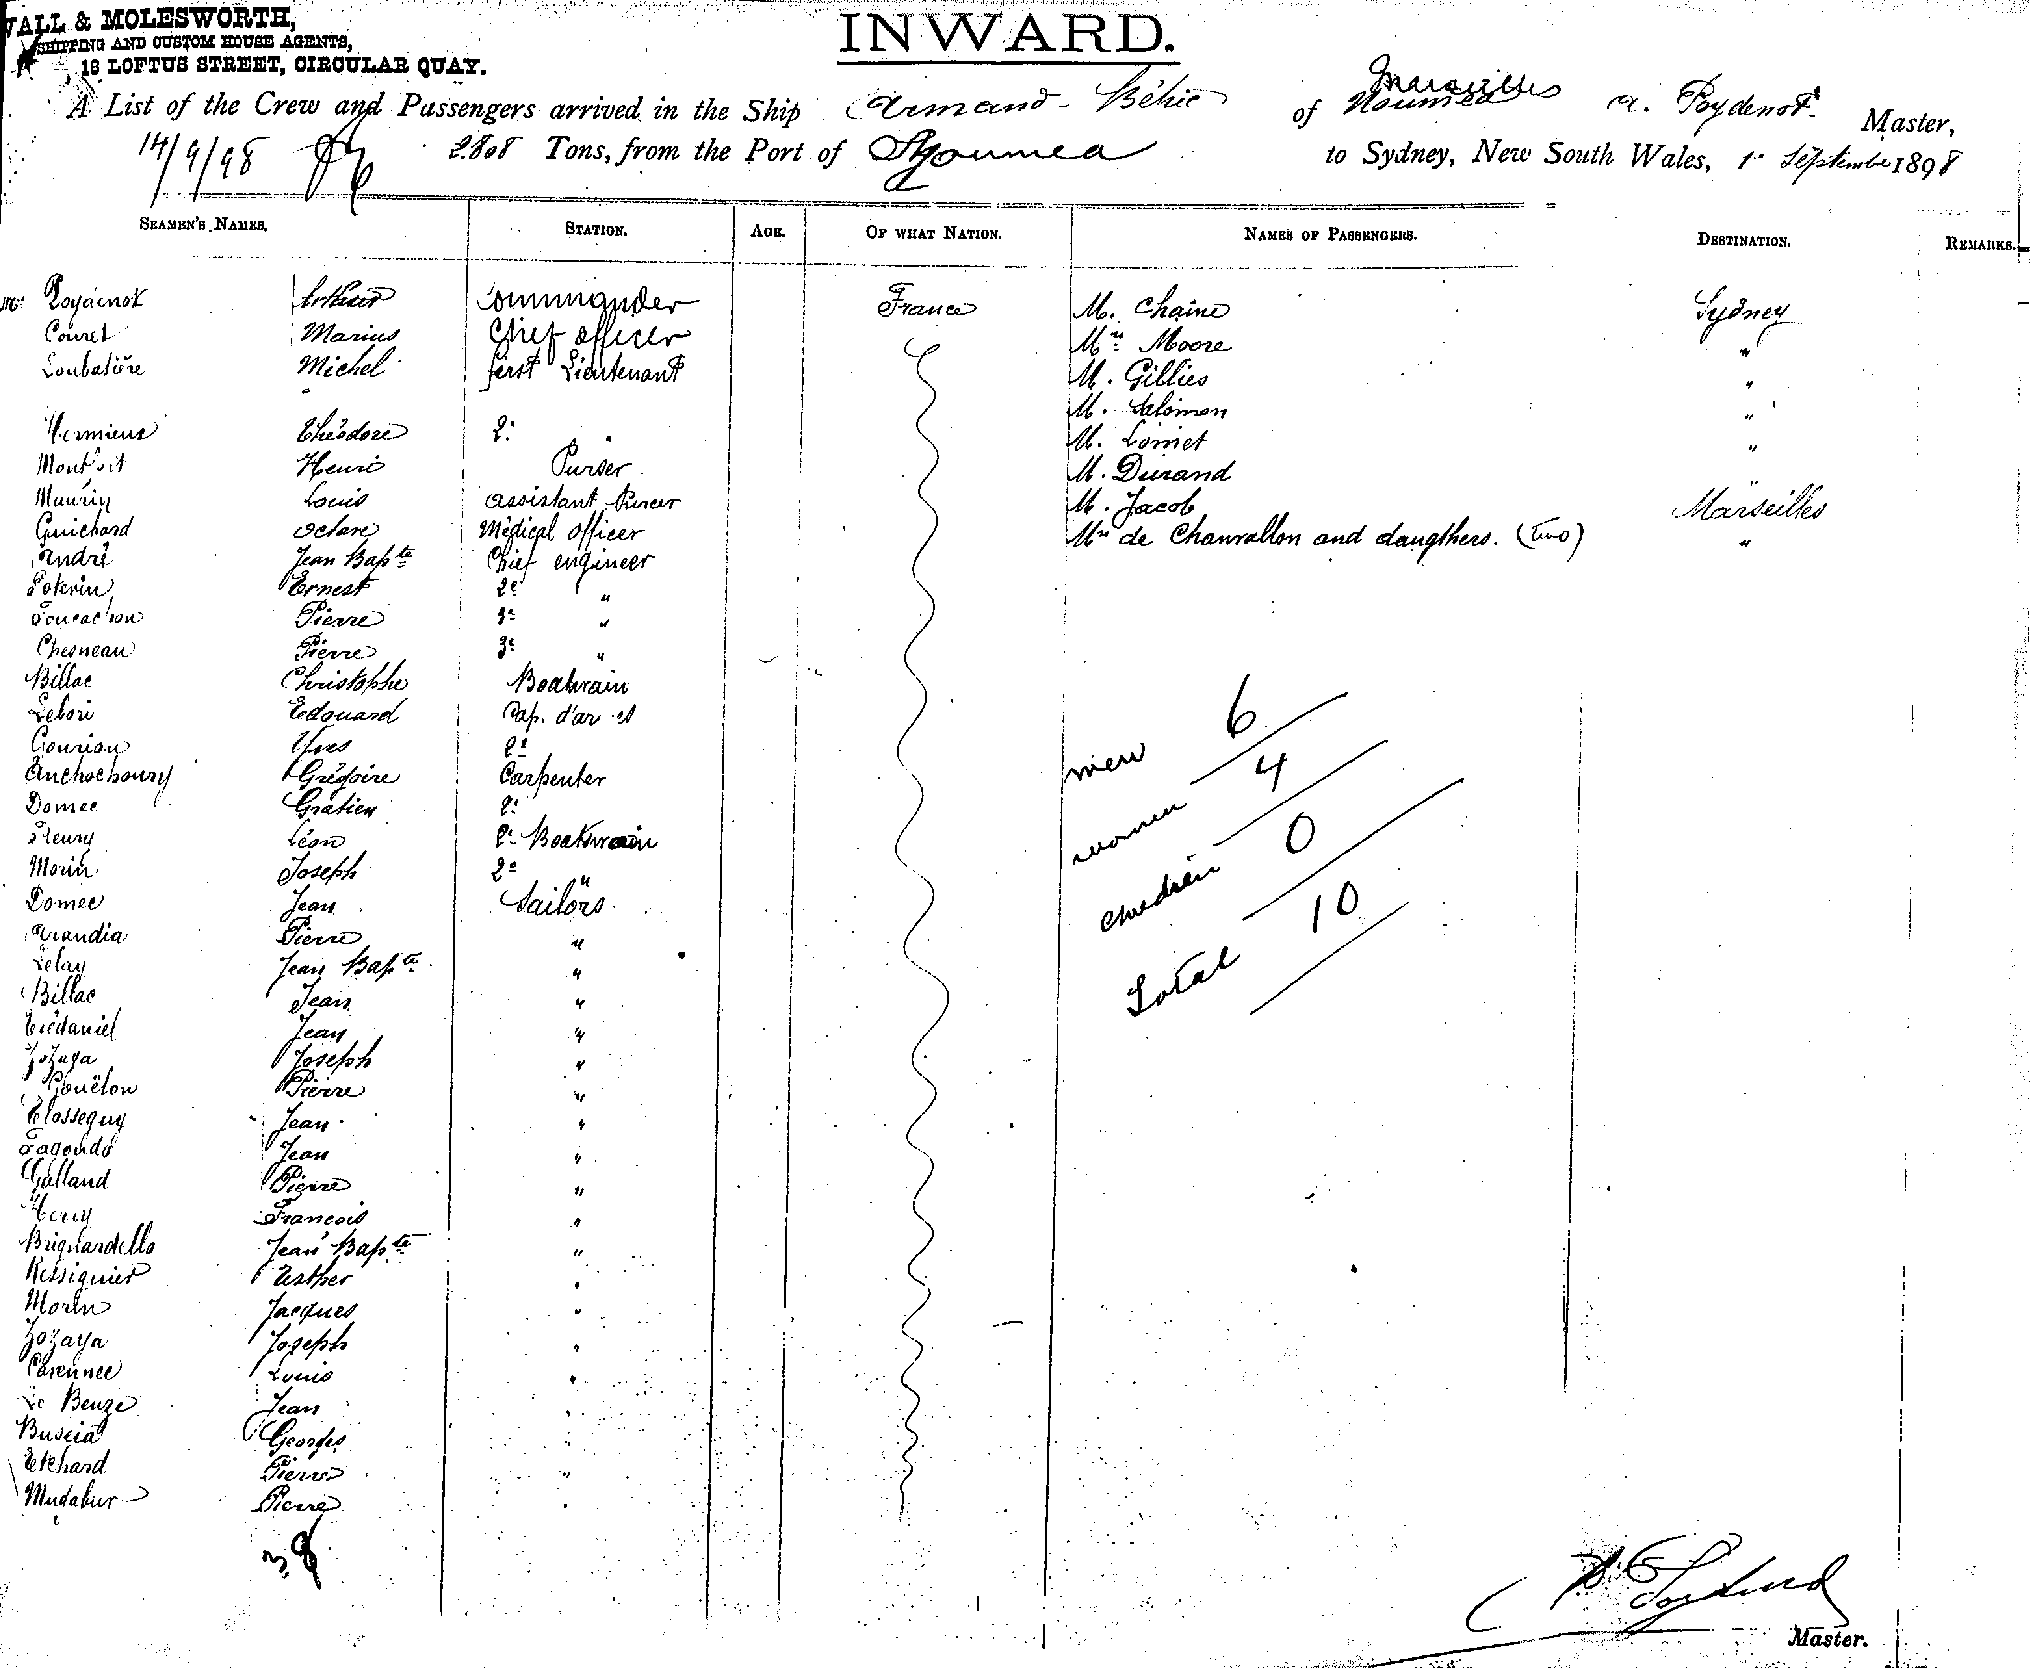 WALL & MOLESWORTH,
SHIPPING AND CUSTOM HOUSE AGENTS,
18 LOFTUS STREET, CIRCULAR QUAY.
INWARD.
A List of the Crew and Passengers arrived in the Ship Armand-Béhic of Marseilles Noumea A. Poydenot Master,
14/9/98 2808 Tons, from the Port of Noumea to Sydney, New South Wales, 1st September 1898
SEAMEN'S NAMES. STATION. AGE. OF WHAT NATION. NAMES OF PASSENGERS. DESTINATION. REMARKS.
Poydenot Arthur Commander France M. Chaine Sydney
Couret Marius Chief officer Mrs Moore "
Loubatière Michel first Lieutenant M. Gillies "
M. Salomon "
Théodore 2d " M. Lomet "
Henri Purser M. Durand
Maurin Louis assistant Purcer M. Jacob Marseilles
Guichard Octave Médical officer Mrs de Chanvallon and daugthers. (two) "
André Jean Bapte Chief engineer
Poterin Ernest 2e "
Pierre 3e "
Chesneau Pierre 3e "
Billac Christophe Boatwain
Edouard Cap. d'ar
Gourion Yves 2d
Grégoire Carpenter
Domec Gratien 2d
Fleury Léon 2d Boatswain
Morin Joseph 2d "
Domec Jean Sailors
Arandia Pierre "
Lelay Jean Bapte "
Billac Jean "
Trédaniel Jean "
Zozaya Joseph "
Gouëlon Pierre "
Elosseguy Jean "
Jean "
Galland Pierre "
Henry François "
Brignardello Jean Bapte "
Ressiguier Esther "
Morin Jacques "
Zozaya Joseph "
Louis "
Le Benze Jean
Georges
Etchard Pierre "
Pierre
38
men 6
women 4
children 0
Total 10
Master.